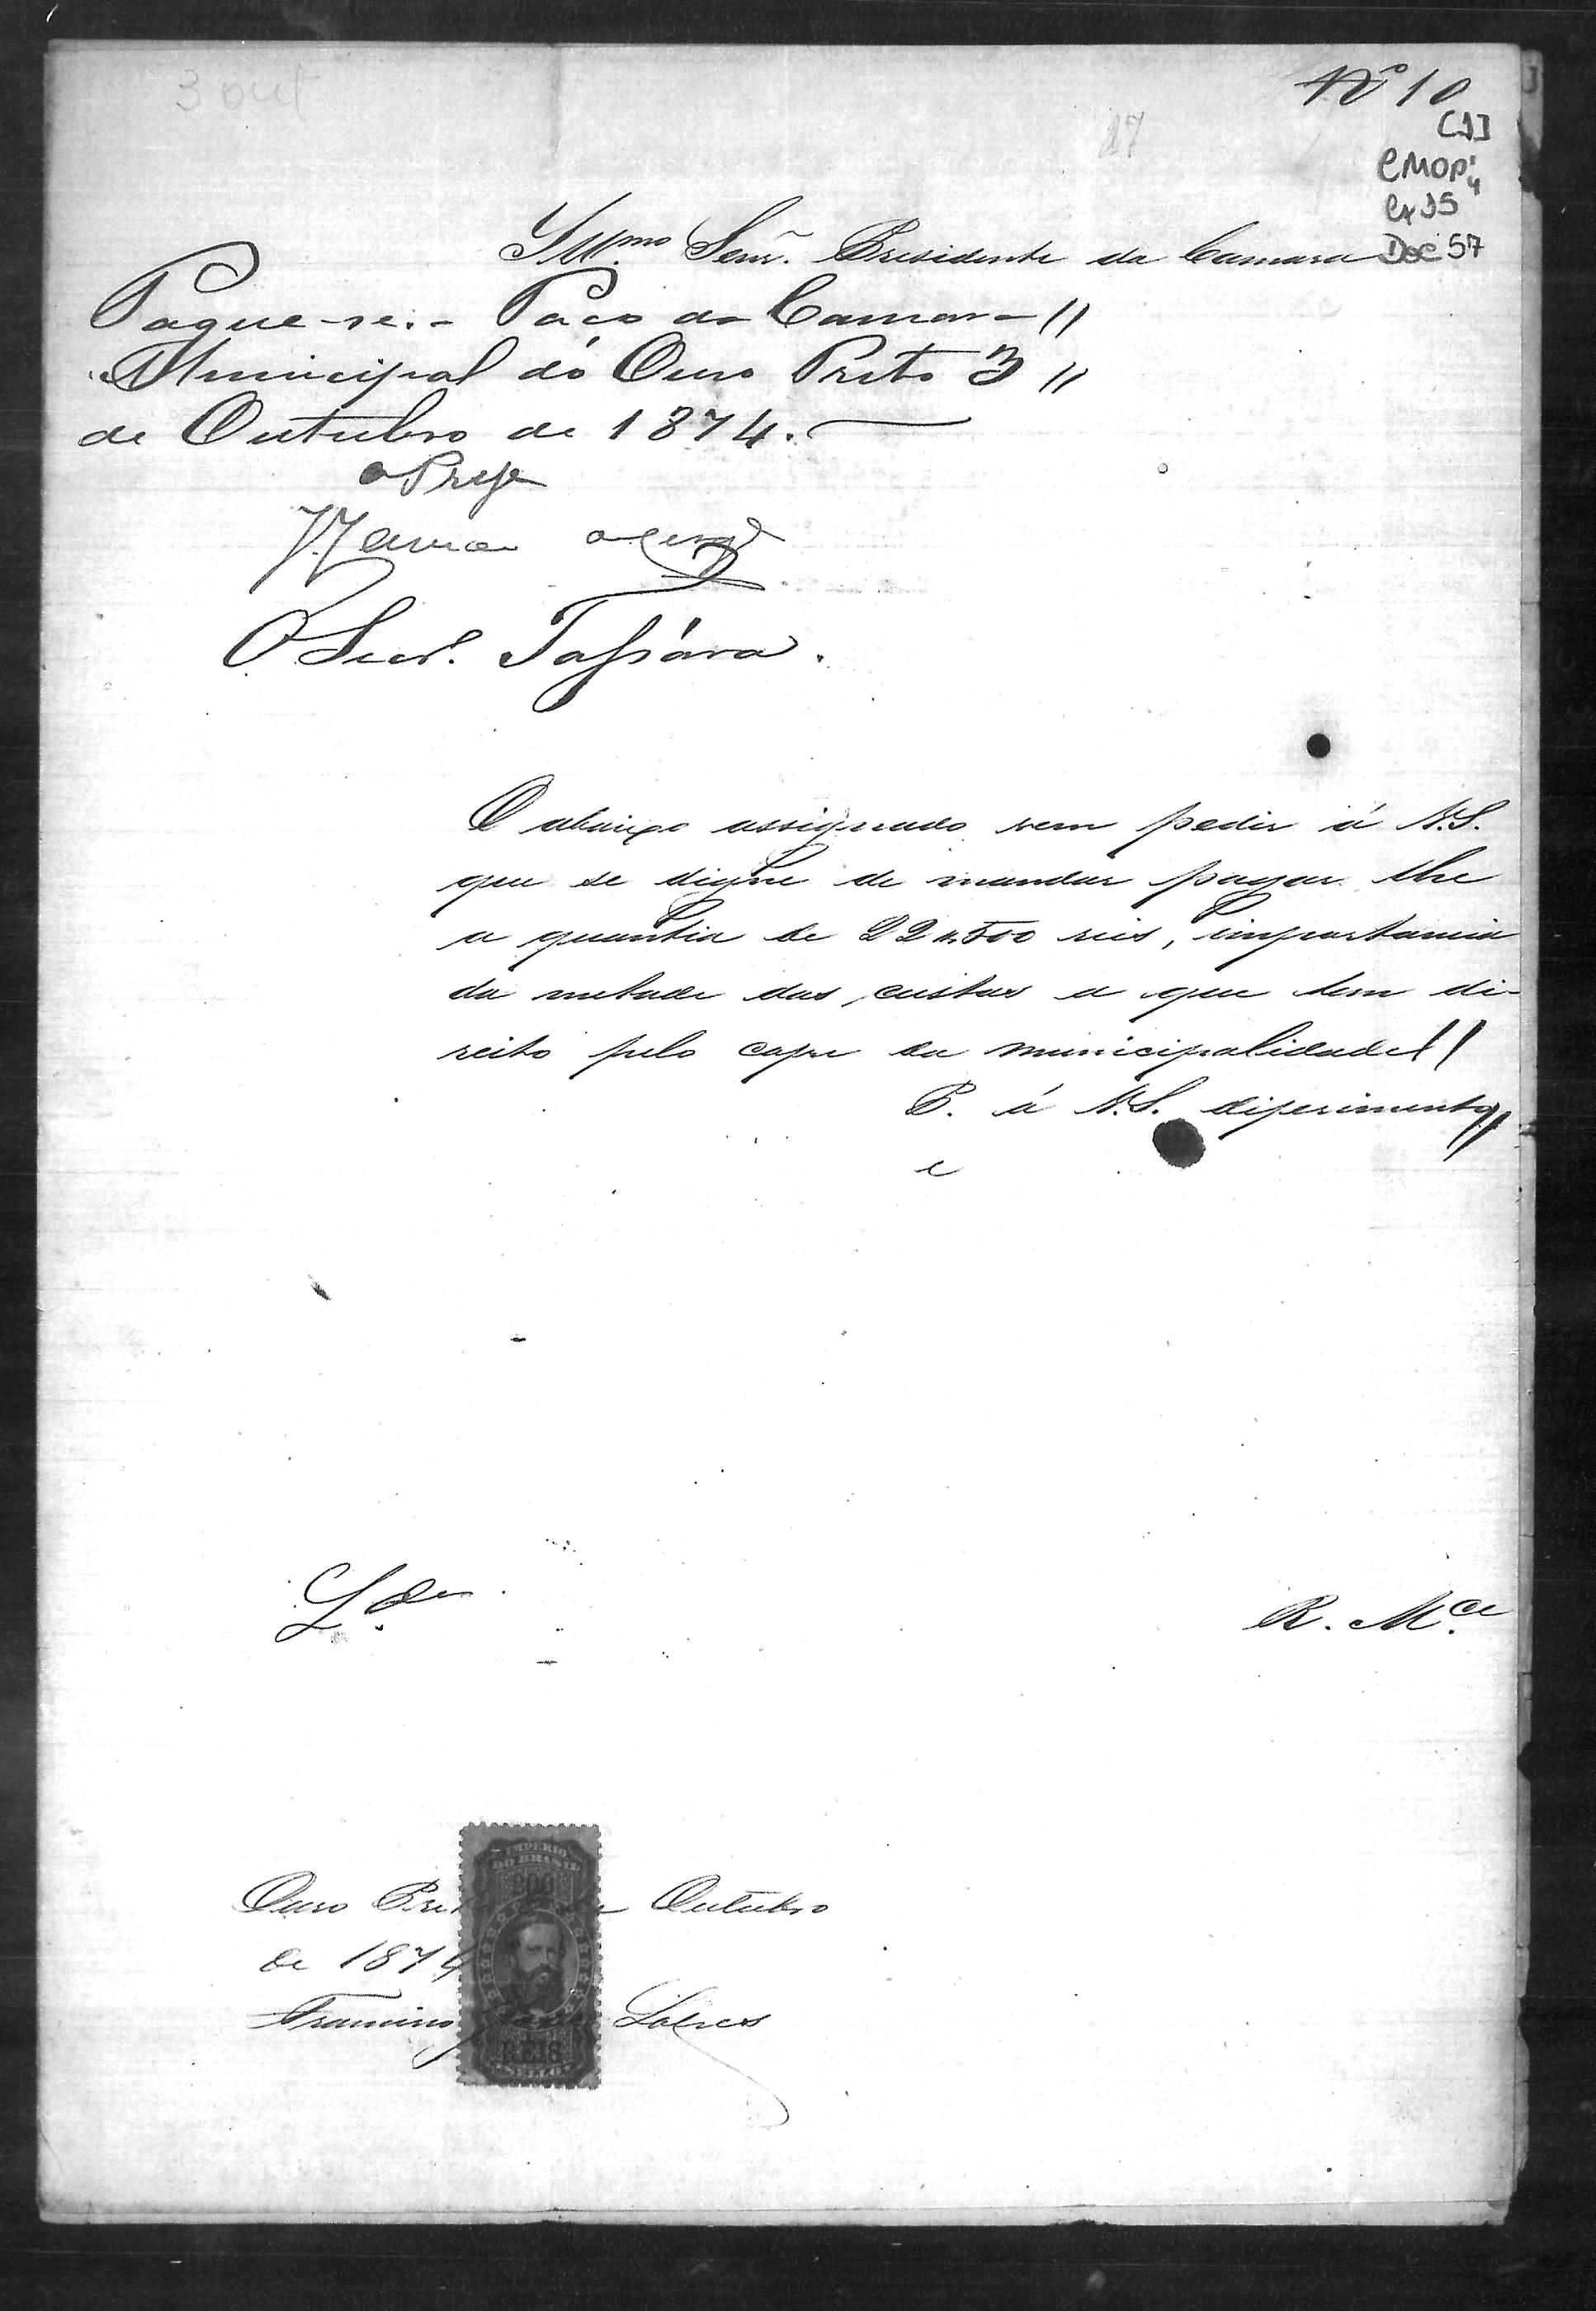 3 out
Nº 10
[1]
CMOP
Cx 35
Doc 57
Illmo. Senr. Presidente da Camara
Pague-se. - Paço da Camara //
Municipal do Ouro Preto 3 //
de Outubro de 1874.
O Secr. Tassára.
O abaixo assignado vem pedir á V.S.
que se digne de mandar pagar lhe
a quantia de 22$500 reis, importancia
da metade das custas a que tem di-
reito pelo cofre da municipalidade //
P. á V.S. diferimento //
e
R. Mce.
Ouro Pre Outubro
de 1874
Francisco
IMPERIO
DO BRASIL
200
REIS
SELLO